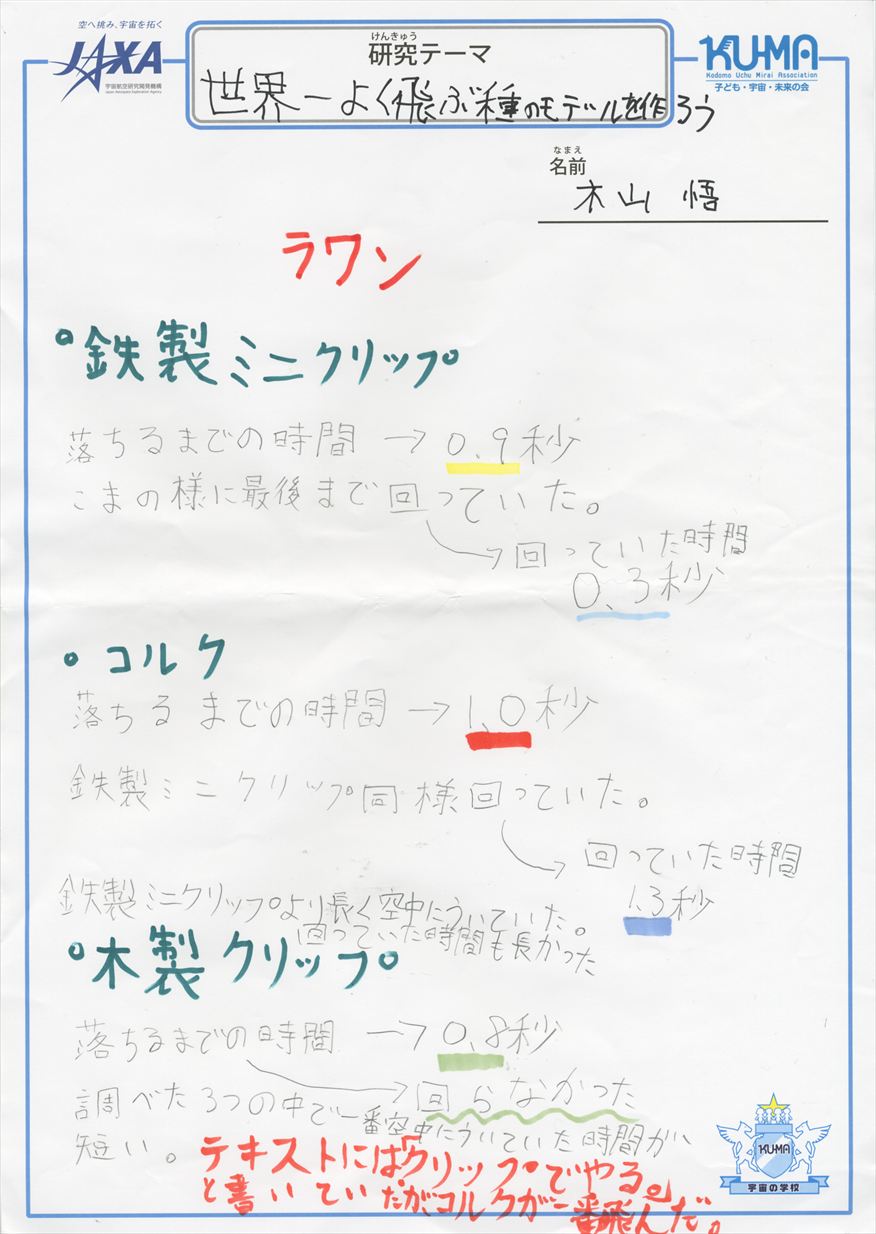 空へ挑み、宇宙を拓く
JAXA
宇宙航空研究開発機構
Japan Aerospace Exploration Agency
けんきゅう
研究テーマ
世界一よく飛ぶ種のモデルを作ろう
KU-MA
Kodomo Uchu Mirai Association
子ども・宇宙・未来の会
なまえ
名前
木山 悟
ラワン
°鉄製ミニクリップ
落ちるまでの時間 → 0.9秒
こまの様に最後まで回っていた。
→回っていた時間
0.3秒
・コルク
落ちるまでの時間 → 1.0秒
鉄製ミニクリップ同様回っていた。
→回っていた時間
1.3秒
鉄製ミニクリップより長く空中にういていた。
回っていた時間も長かった
°木製クリップ
落ちるまでの時間 → 0.8秒
→回らなかった
調べた3つの中で一番空中にういていた時間が
短い。
テキストには「クリップでやる。」
と書いていたがコルクが一番飛んだ。
KU-MA
宇宙の学校